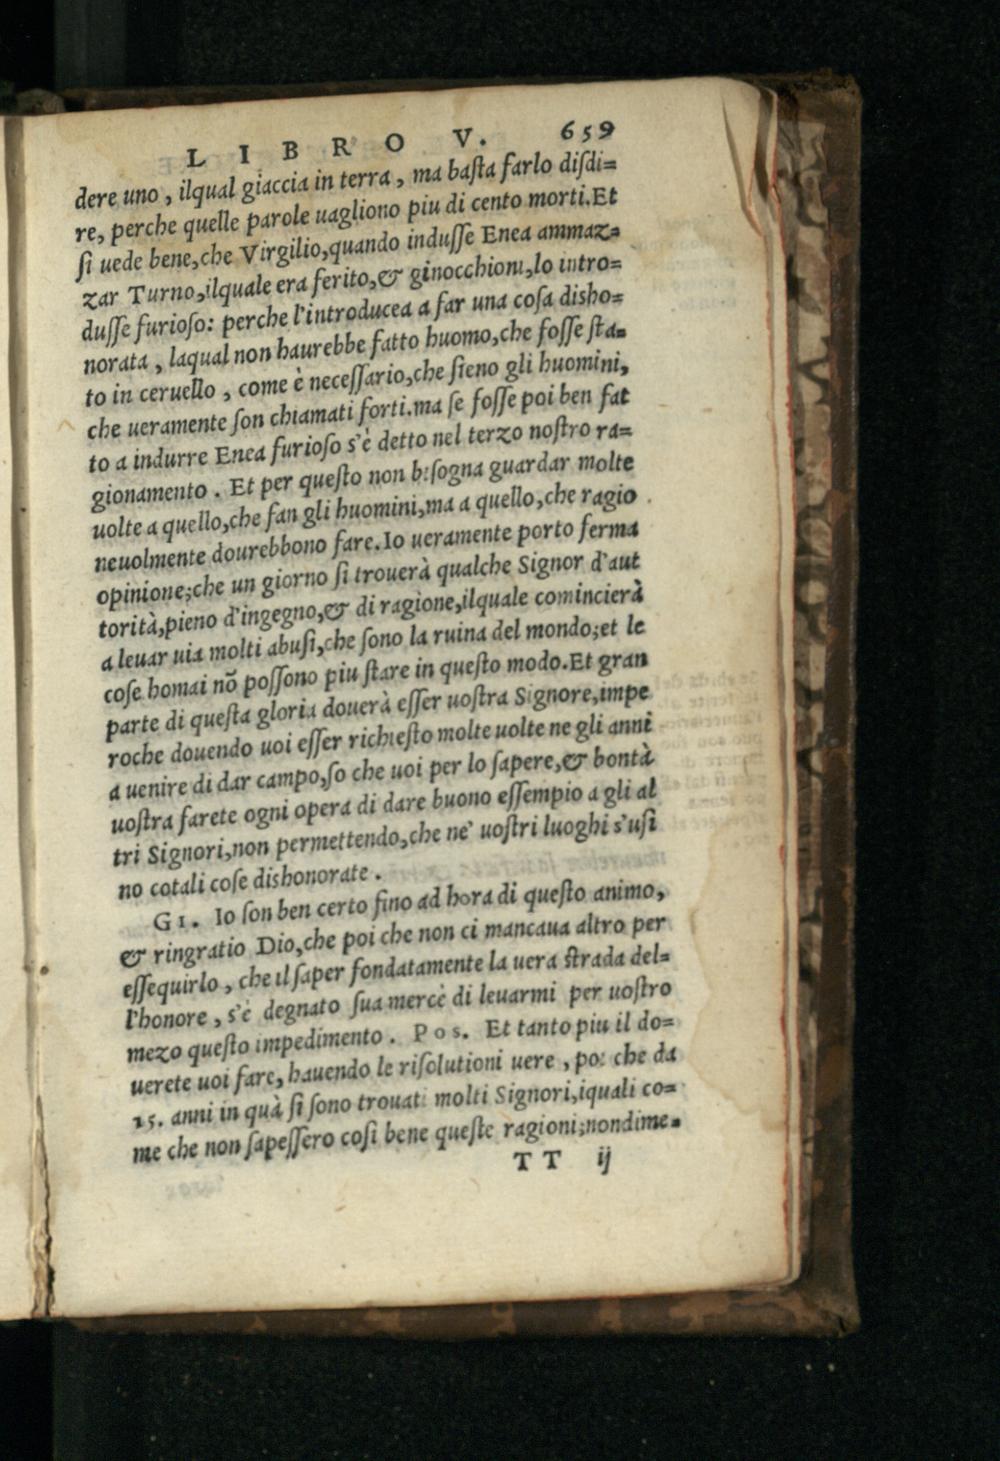 LIBRO V. 659
dere uno, ilqual giaccia in terra, ma basta farlo disdi=
re, perche quelle parole uagliono piu di cento morti. Et
si uede bene, che Virgilio, quando indusse Enea ammaz=
zar Turno, ilquale era ferito, & ginocchioni, lo intro=
dusse furioso: perche l'introducea a far una cosa disho=
norata, laqual non haurebbe fatto huomo, che fosse sta=
to in ceruello, come è necessario, che sieno gli huomini,
che ueramente son chiamati forti. ma se fosse poi ben fat
to a indurre Enea furioso s'è detto nel terzo nostro ra=
gionamento. Et per questo non bisogna guardar molte
uolte a quello, che fan gli huomini, ma a quello, che ragio
neuolmente dourebbono fare. Io ueramente porto ferma
opinione; che un giorno si trouerà qualche Signor d'aut
torità, pieno d'ingegno, & di ragione, ilquale comincierà
a leuar uia molti abusi, che sono la ruina del mondo; et le
cose homai nõ possono piu stare in questo modo. Et gran
parte di questa gloria douerà esser uostra Signore, impe
roche douendo uoi esser richiesto molte uolte ne gli anni
a uenire di dar campo, so che uoi per lo sapere, & bontà
uostra farete ogni opera di dare buono essempio a gli al
tri Signori, non permettendo, che ne' uostri luoghi s'usi
no cotali cose dishonorate.
GI. Io son ben certo fino ad hora di questo animo,
& ringratio Dio, che poi che non ci mancaua altro per
essequirlo, che il saper fondatamente la uera strada del=
l'honore, s'è degnato sua mercè di leuarmi per uostro
mezo questo impedimento. Pos. Et tanto piu il do=
uerete uoi fare, hauendo le risolutioni uere, poi che da
25. anni in quà si sono trouati molti Signori, iquali co=
me che non sapessero cosi bene queste ragioni; nondime=
TT ij